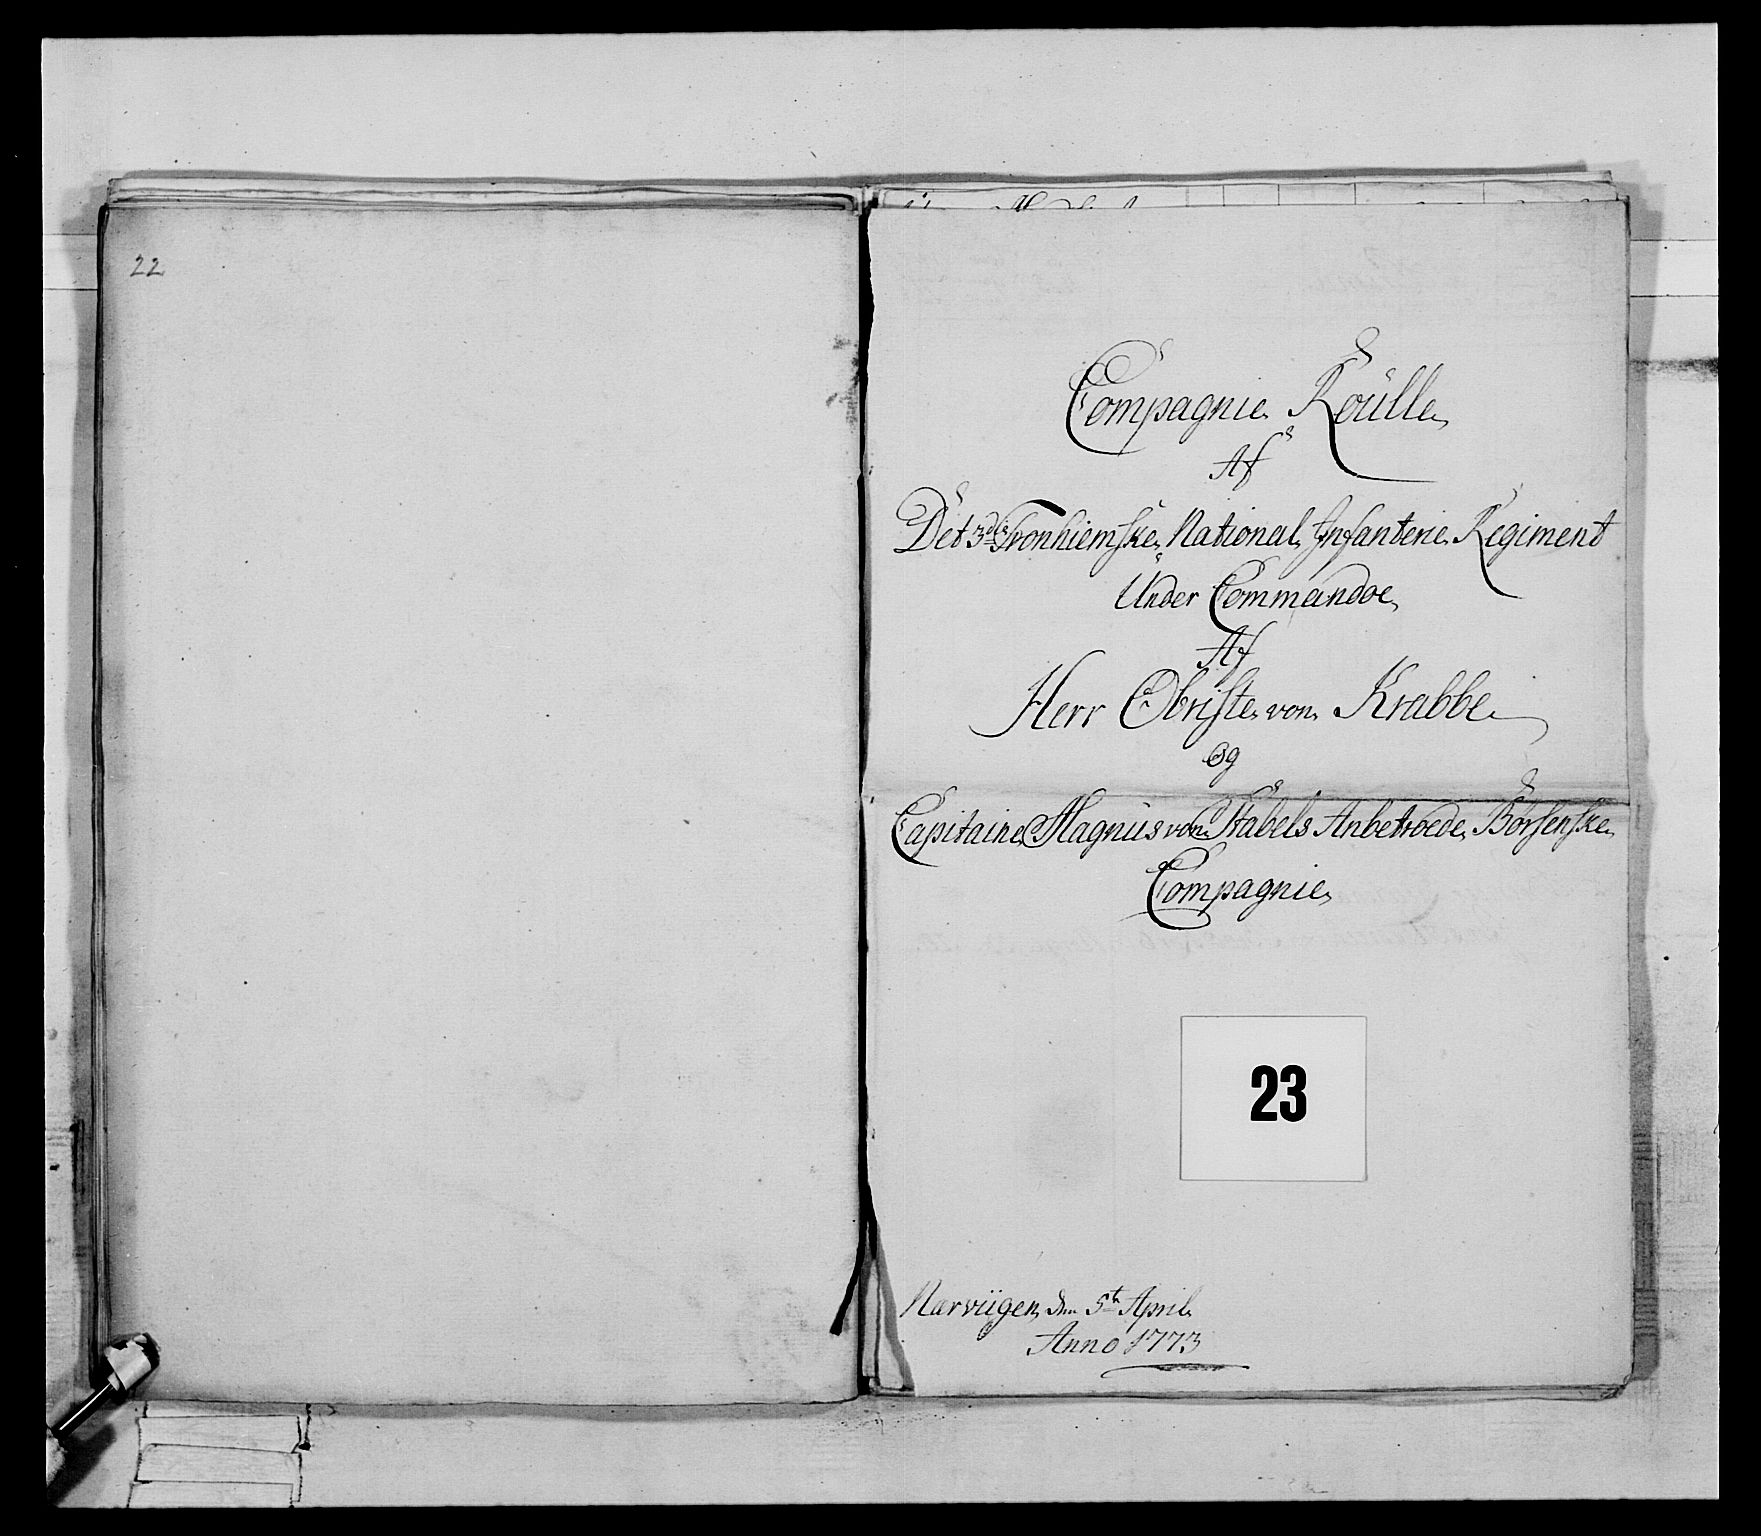 22
Compagnie Roülle
Af
Det 3de Tronhiemske National Infanterie Regiment
Under Commandoe
Af
Herr Obriste von Krabbe
og
Capitaine Magnüs von Stabels Anbetroede Börsenske
Compagnie
23
Nærvügen den 5te April
Anno 1773